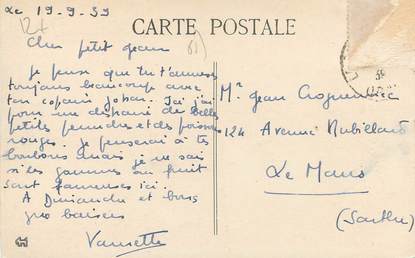 Le 19-9-39
CARTE POSTALE
Cher petit Jean
Je pense que tu t'amuses
toujours beaucoup avec
ton copain Johan. Ici j'ai
pour me distraire de belles
petites perruches et des poissons
rouges. Je penserai à tes
bonbons mais je ne sais
si les gommes au fruit
sont fameuses ici.
A Dimanche et bons
gros baisers
Mr Jean
124 Avenue Rubillard
Le Mans
(Sarthe)